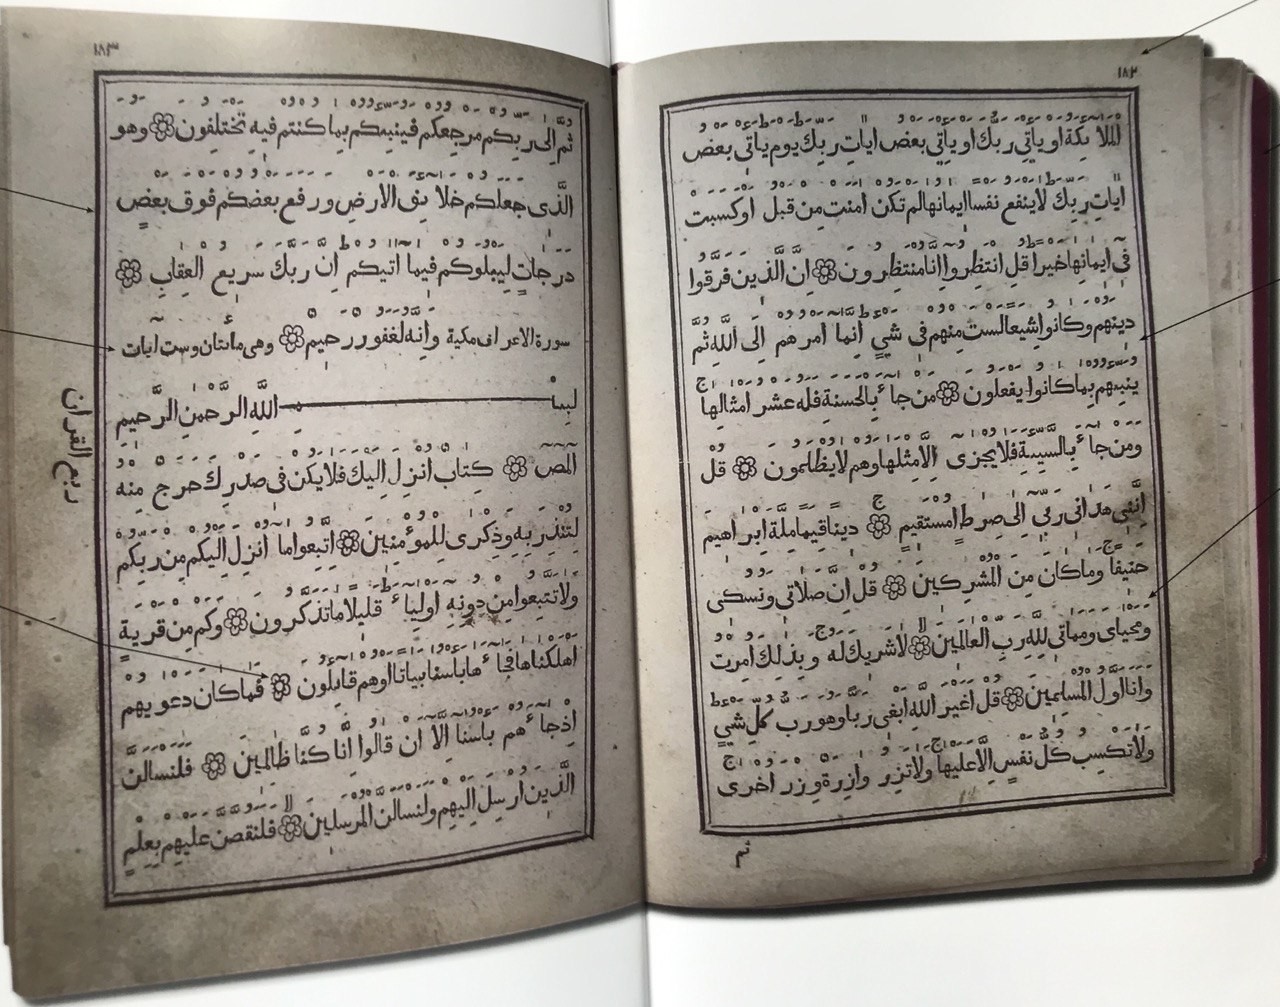 ١٨٢
الملائكة او ياتي ربك او ياتي بعض ايات ربك يوم ياتي بعض
ايات ربك لا ينفع نفسا ايمانها لم تكن امنت من قبل او كسبت
في ايمانها خيرا قل انتظروا انا منتظرون ان الذين فرقوا
دينهم وكانوا شيعا لست منهم في شيء انما امرهم الى الله ثم
ينبئهم بما كانوا يفعلون من جاء بالحسنة فله عشر امثالها
ومن جاء بالسيئة فلا يجزى الا مثلها وهم لا يظلمون قل
انني هداني ربي الى صرط مستقيم دينا قيما ملة ابراهيم
حنيفا وما كان من المشركين قل ان صلاتي ونسكي
ومحياي ومماتي لله رب العالمين لا شريك له وبذلك امرت
وانا اول المسلمين قل اغير الله ابغي ربا وهو رب كل شيء
ولا تكسب كل نفس الا عليها ولا تزر وازرة وزر اخرى
ثم
١٨٣
ثم الى ربكم مرجعكم فينبئكم بما كنتم فيه تختلفون وهو
الذي جعلكم خلائق الارض ورفع بعضكم فوق بعض
درجات ليبلوكم فيما اتيكم ان ربك سريع العقاب
سورة الاعراف مكية وانه لغفور رحيم وهي مائتان وست ايات
بسم الله الرحمن الرحيم
المص كتاب انزل اليك فلا يكن في صدرك حرج منه
لتنذر به وذكرى للمؤمنين اتبعوا ما انزل اليكم من ربكم
ولا تتبعوا من دونه اولياء قليلا ما تذكرون وكم من قرية
اهلكناها فجاءها باسنا بياتا او هم قايلون فما كان دعويهم
اذ جاءهم باسنا الا ان قالوا انا كنا ظالمين فلنسالن
الذين ارسل اليهم ولنسالن المرسلين فلنقصن عليهم بعلم
ربع القران